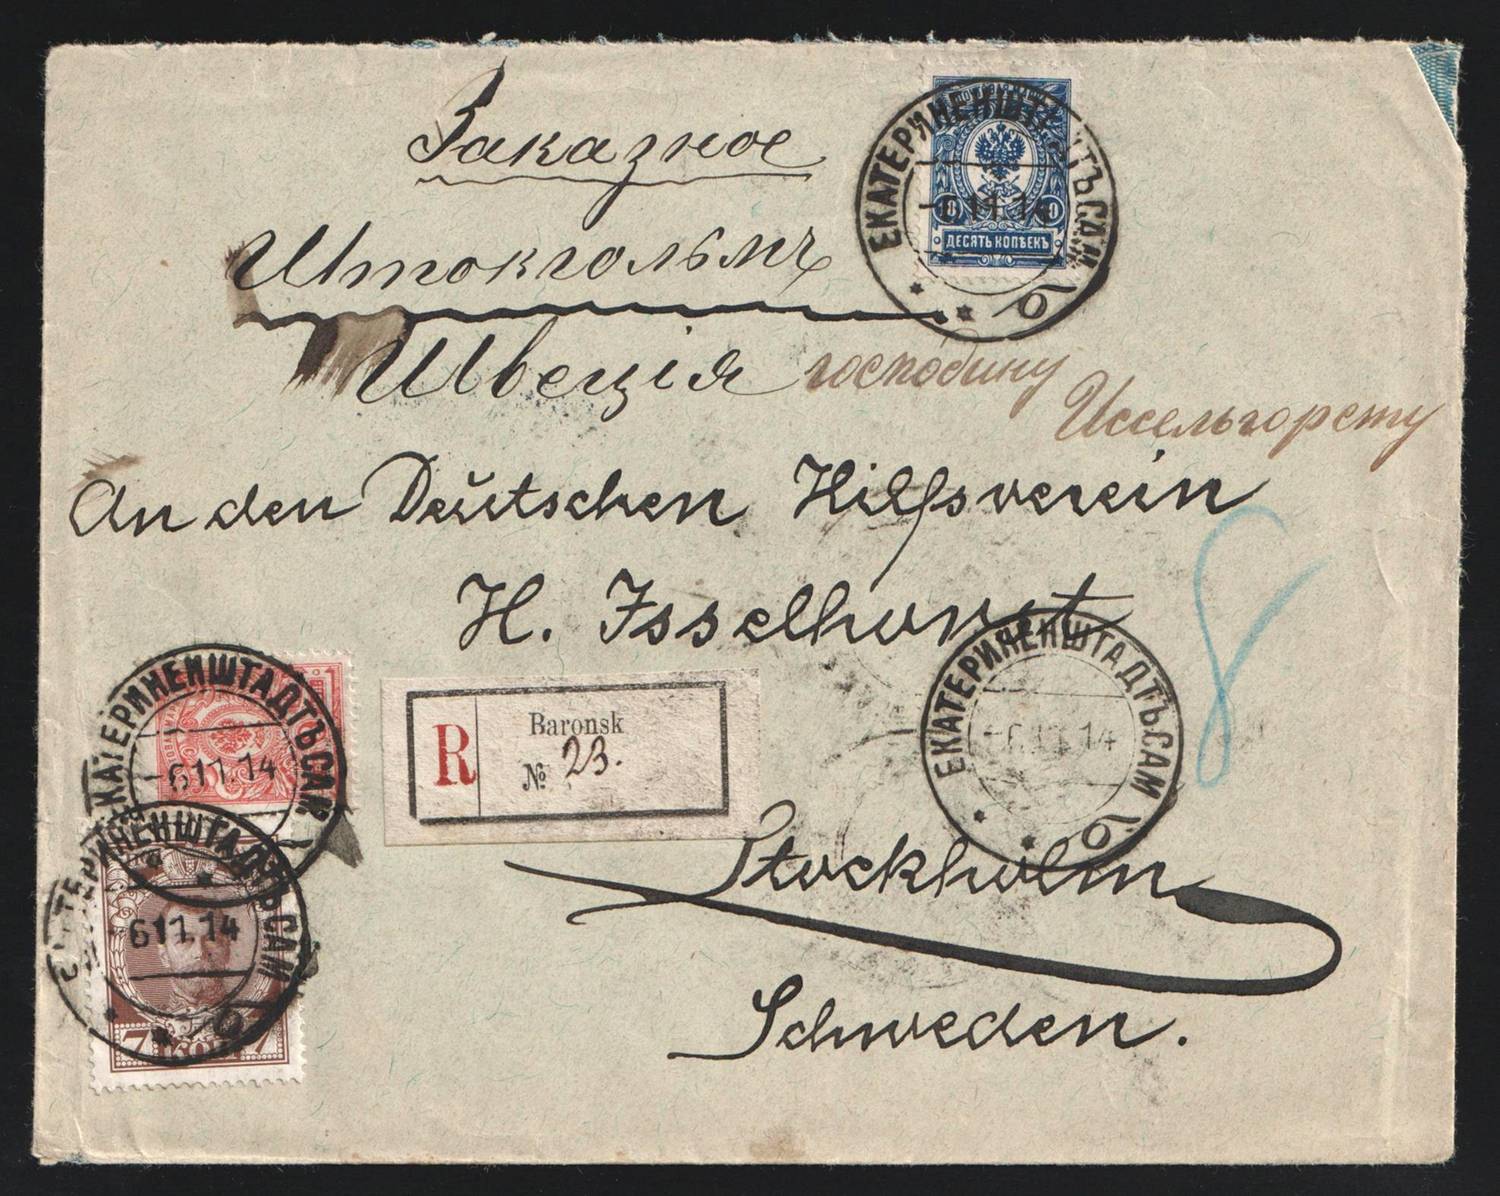 Заказное
ЕКАТЕРИНЕНШТАДТЪ САМ
-611.14
10 10
ДЕСЯТЬ КОПѢЕКЪ
б
Штокгольмъ
Швеція господину
Иссельгорсту
An den Deutschen Hilfsverein
H. Isselhorst
8
ЕКАТЕРИНЕНШТАДТЪ САМ
-611.14
R Baronsk
№ 23.
ЕКАТЕРИНЕНШТАДТЪ САМ
-6.11.14
б
Stockholm
ЕКАТЕРИНЕНШТАДТЪ САМ
611.14
б
7 КОП 7
Schweden.